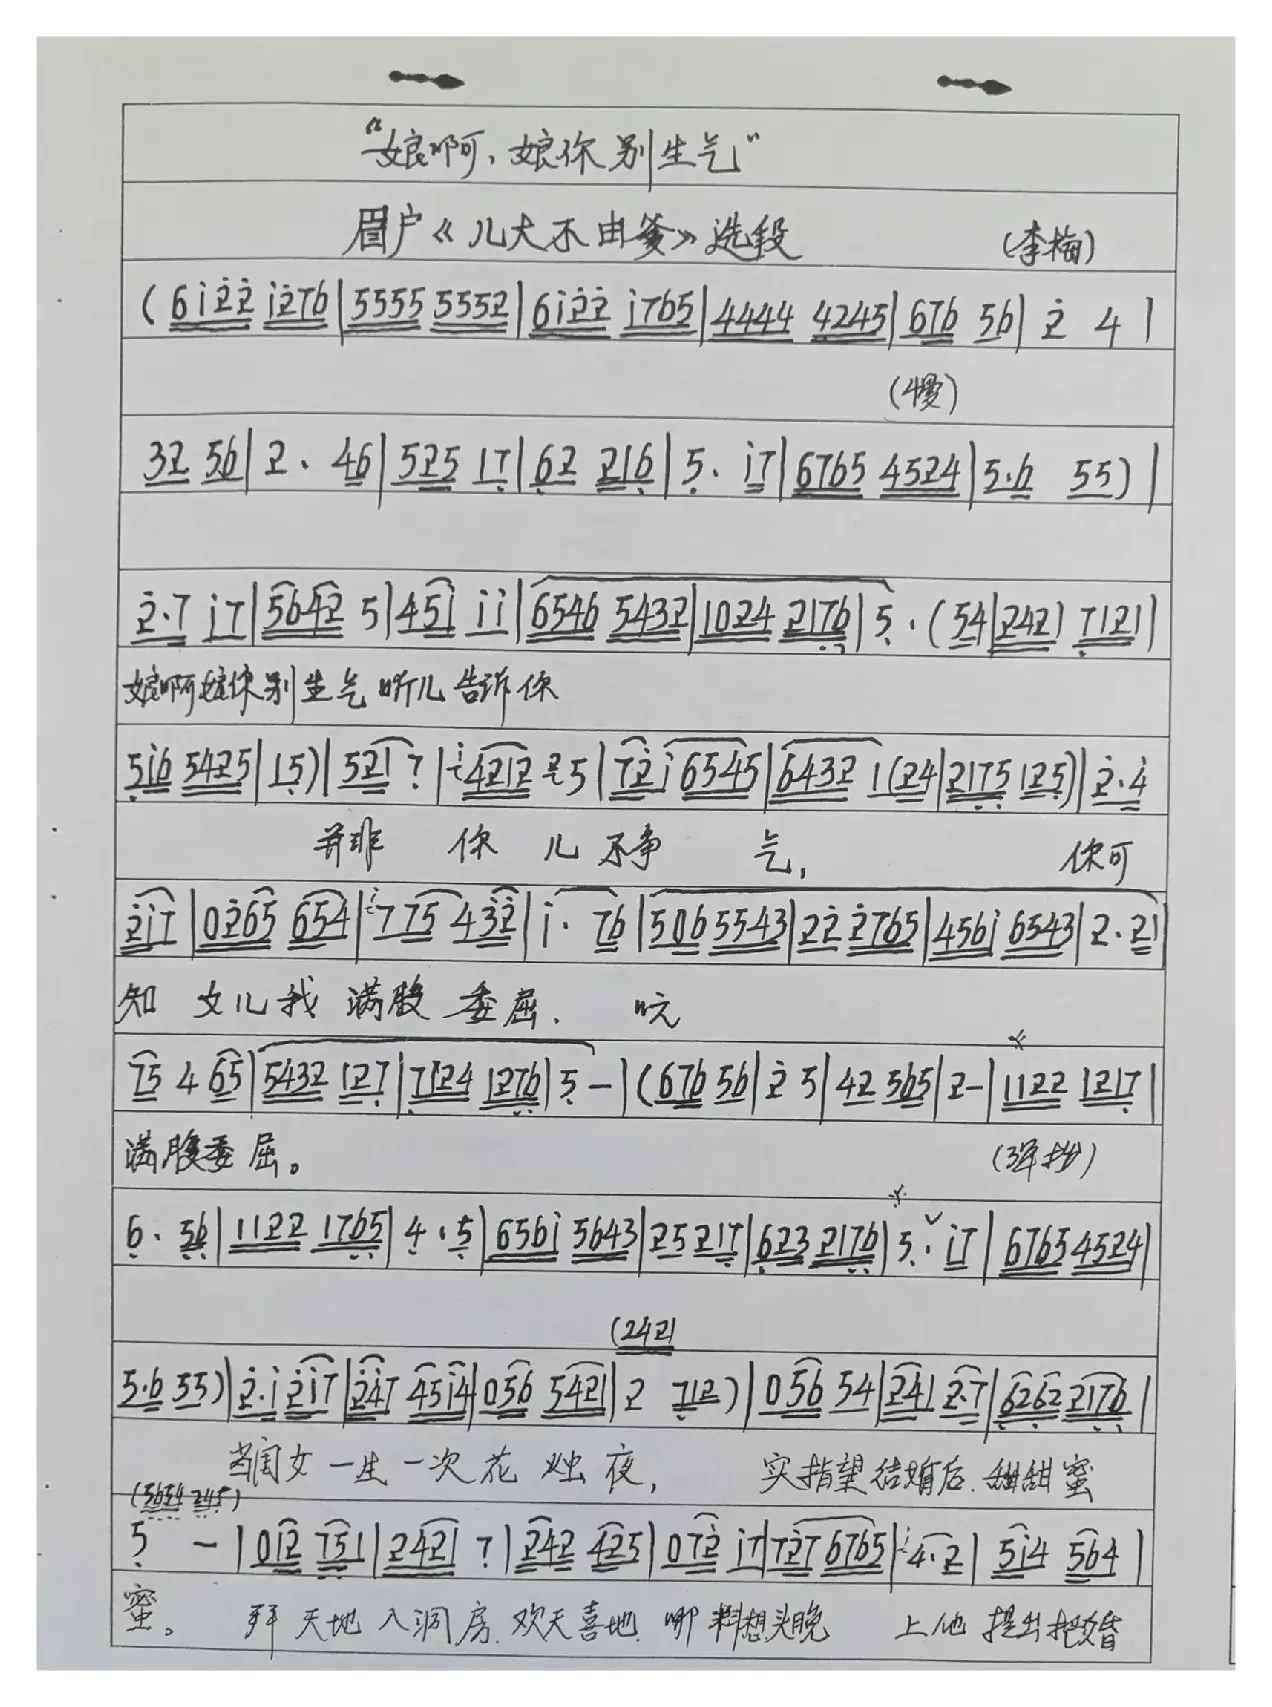 “娘啊、娘你别生气”
眉户《儿大不由爹》选段 (李梅)
(6i2̇2̇ i2̇76|5555 5552|6i2̇2̇ i765|4444 4245|676 56|2̇ 4|
(慢)
32 56|2. 46|525 17|62 216|5. i7|6765 4524|5.6 55)|
2̇.7 i7|5642 5|45i ii|6546 5432|1024 2176|5.(54|2421 7121|
娘啊娘你别生气听儿告诉你
5i6 5425|15)|521 7|4212 25|72̇i 6545|6432 1(24|2175 125)|2̇.4̇
并非 你 儿 不争 气, 你可
2̇i7|02̇65 654|775 432̇|i. 76|506 5543|22̇ 2̇765|456i 6543|2.21|
知 女儿我 满腹 委屈. 吭
75 4 65|5432 127|7124 1276|5-|(676 56|2̇ 5|42 565|2-|1122 1217|
满腹委屈。
6. 56|1122 1765|4.5|656i 5643|25 217|623 2176|5.ˇi7|6765 4524|
(2421
5.6 55)|2̇.i 2̇i7|2̇47 45i4|056 5421|2 712)|056 54|241 2.7|6262 2176|
当闺女一生一次花烛夜, 实指望结婚后.甜甜蜜
(5654 245)
5 -|012 751|2421 7|242 425|072̇ i7|72̇7 6765|4.2|5i4 564|
蜜。 拜天地入洞房.欢天喜地.哪料想头晚 上他提出把婚